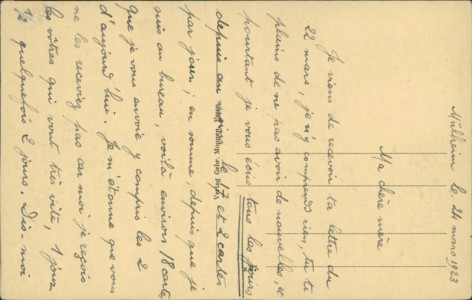 Mülheim le 24 mars 1923
Ma chère mère
Je viens de recevoir ta lettre du
22 mars, je n'y comprends rien, tu te
plains de ne pas avoir de nouvelles, et
pourtant je vous écris tous les jours
depuis au le 17 et 2 cartes
par jour; en somme, depuis que je
suis au bureau, voilà environ 18 cartes
que je vous envoie y compris les 2
d'aujourd'hui. Je m'étonne que vous
ne les receviez pas car moi je reçois
les vôtres qui vont très vite, 1 jour
1/2 quelquefois 2 jours. Dis-moi